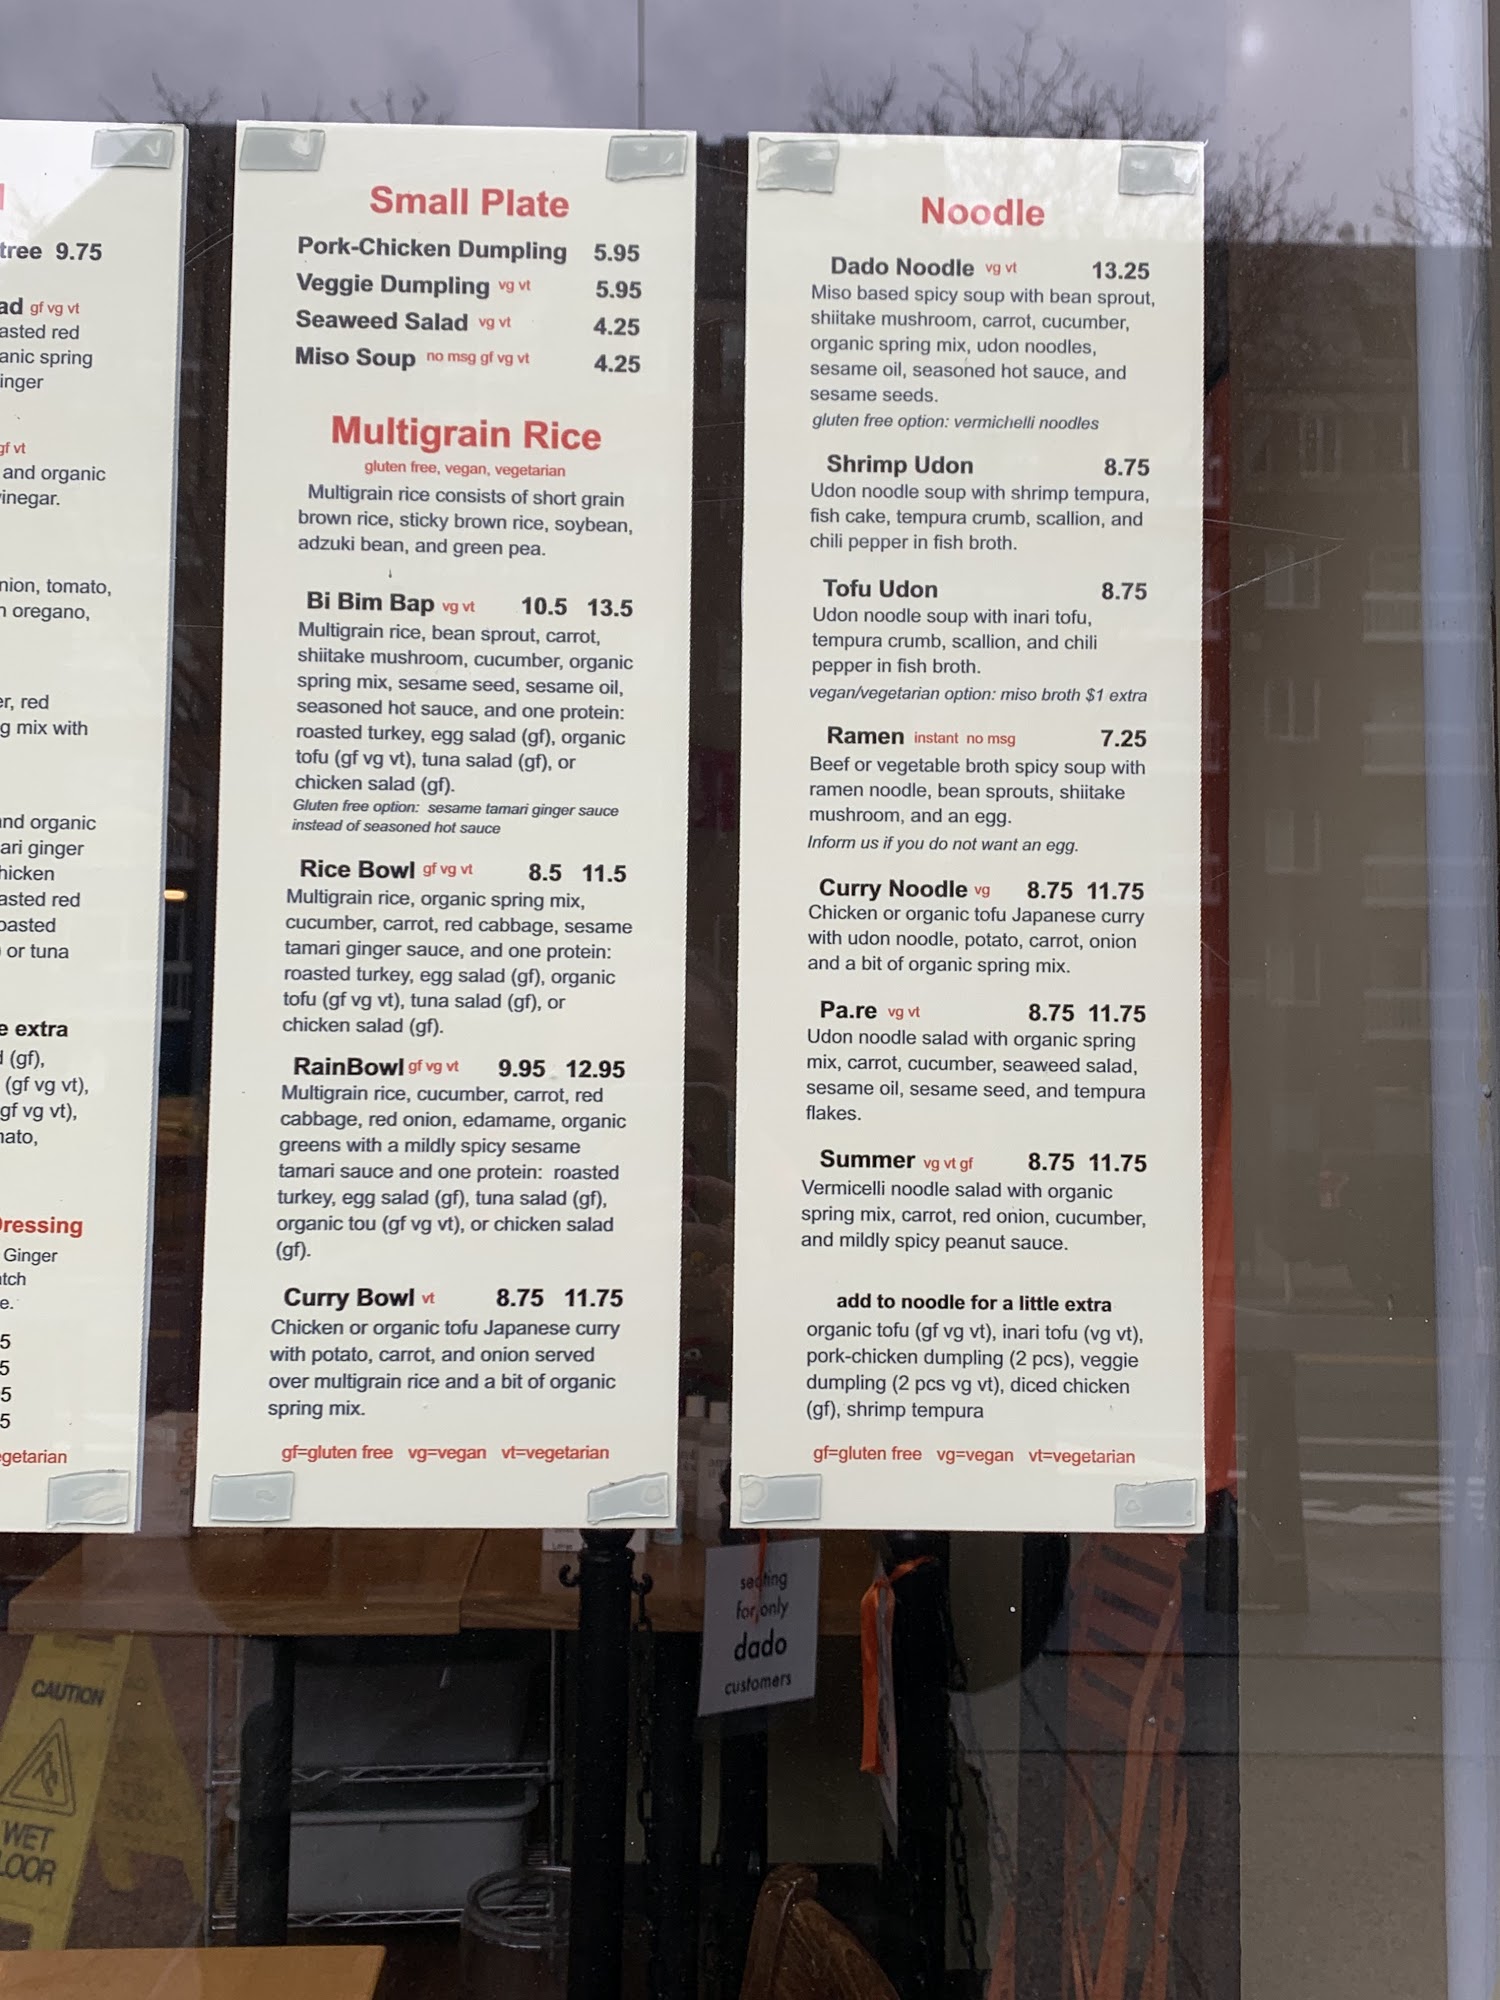 tree 9.75
ad gf vg vt
asted red
anic spring
inger
gf vt
and organic
vinegar.
nion, tomato,
n oregano,
er, red
g mix with
and organic
ari ginger
hicken
asted red
oasted
or tuna
e extra
(gf),
(gf vg vt),
gf vg vt),
mato,
Dressing
Ginger
atch
e.
5
5
95
5
egetarian
Small Plate
Pork-Chicken Dumpling 5.95
Veggie Dumpling vg vt 5.95
Seaweed Salad vg vt 4.25
Miso Soup no msg gf vg vt 4.25
Multigrain Rice
gluten free, vegan, vegetarian
Multigrain rice consists of short grain
brown rice, sticky brown rice, soybean,
adzuki bean, and green pea.
Bi Bim Bap vg vt 10.5 13.5
Multigrain rice, bean sprout, carrot,
shiitake mushroom, cucumber, organic
spring mix, sesame seed, sesame oil,
seasoned hot sauce, and one protein:
roasted turkey, egg salad (gf), organic
tofu (gf vg vt), tuna salad (gf), or
chicken salad (gf).
Gluten free option: sesame tamari ginger sauce
instead of seasoned hot sauce
Rice Bowl gf vg vt 8.5 11.5
Multigrain rice, organic spring mix,
cucumber, carrot, red cabbage, sesame
tamari ginger sauce, and one protein:
roasted turkey, egg salad (gf), organic
tofu (gf vg vt), tuna salad (gf), or
chicken salad (gf).
RainBowl gf vg vt 9.95 12.95
Multigrain rice, cucumber, carrot, red
cabbage, red onion, edamame, organic
greens with a mildly spicy sesame
tamari sauce and one protein: roasted
turkey, egg salad (gf), tuna salad (gf),
organic tou (gf vg vt), or chicken salad
(gf).
Curry Bowl vt 8.75 11.75
Chicken or organic tofu Japanese curry
with potato, carrot, and onion served
over multigrain rice and a bit of organic
spring mix.
gf=gluten free vg=vegan vt=vegetarian
Noodle
Dado Noodle vg vt 13.25
Miso based spicy soup with bean sprout,
shiitake mushroom, carrot, cucumber,
organic spring mix, udon noodles,
sesame oil, seasoned hot sauce, and
sesame seeds.
gluten free option: vermichelli noodles
Shrimp Udon 8.75
Udon noodle soup with shrimp tempura,
fish cake, tempura crumb, scallion, and
chili pepper in fish broth.
Tofu Udon 8.75
Udon noodle soup with inari tofu,
tempura crumb, scallion, and chili
pepper in fish broth.
vegan/vegetarian option: miso broth $1 extra
Ramen instant no msg 7.25
Beef or vegetable broth spicy soup with
ramen noodle, bean sprouts, shiitake
mushroom, and an egg.
Inform us if you do not want an egg.
Curry Noodle vg 8.75 11.75
Chicken or organic tofu Japanese curry
with udon noodle, potato, carrot, onion
and a bit of organic spring mix.
Pa.re vg vt 8.75 11.75
Udon noodle salad with organic spring
mix, carrot, cucumber, seaweed salad,
sesame oil, sesame seed, and tempura
flakes.
Summer vg vt gf 8.75 11.75
Vermicelli noodle salad with organic
spring mix, carrot, red onion, cucumber,
and mildly spicy peanut sauce.
add to noodle for a little extra
organic tofu (gf vg vt), inari tofu (vg vt),
pork-chicken dumpling (2 pcs), veggie
dumpling (2 pcs vg vt), diced chicken
(gf), shrimp tempura
gf=gluten free vg=vegan vt=vegetarian
seating
for only
dado
customers
CAUTION
WET
LOOR